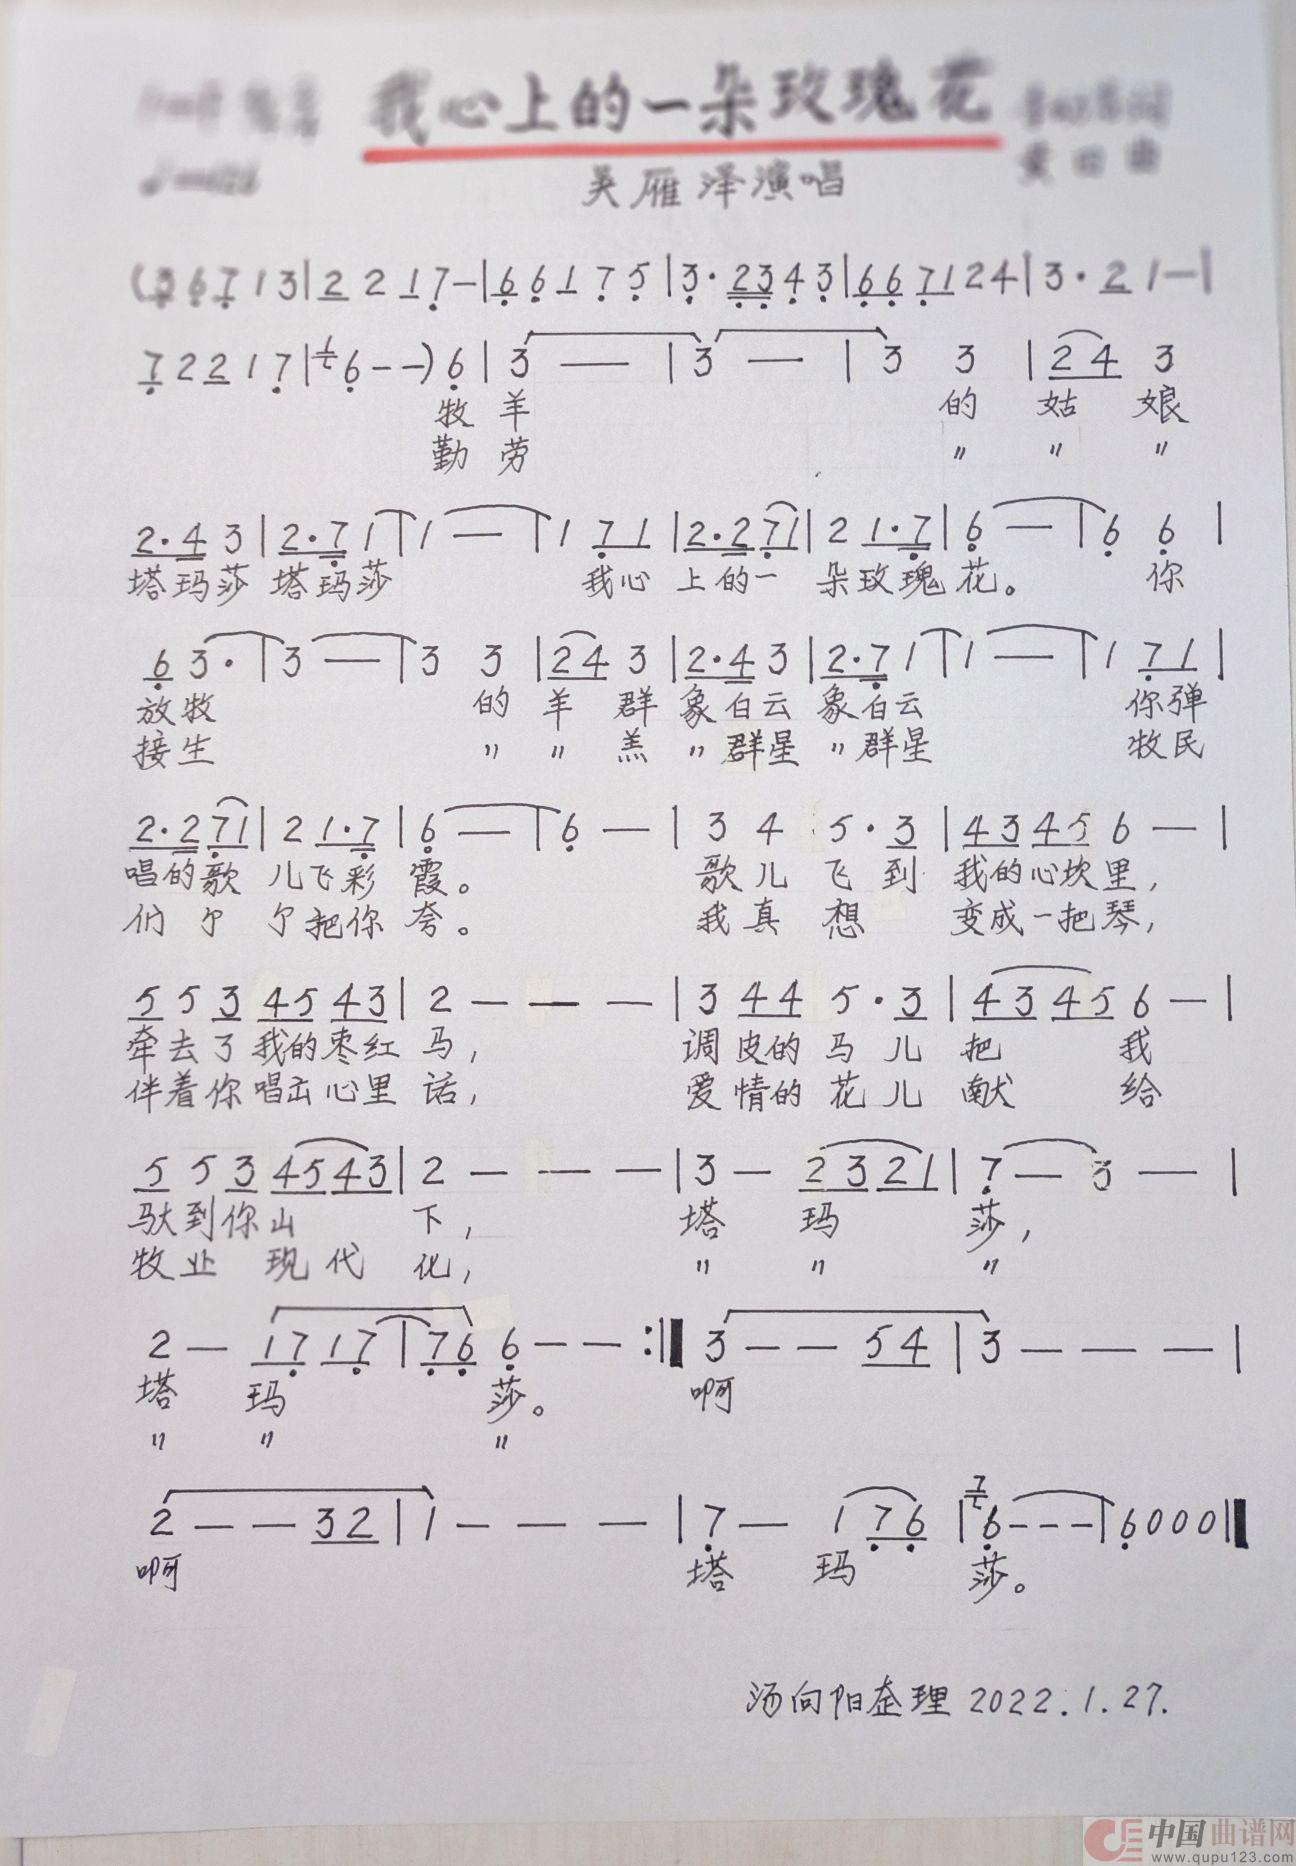 我心上的一朵玫瑰花
黄田曲
吴雁泽演唱
(3 6 7 1 3 | 2 2 1 7 — | 6 6 1 7 5 | 3 · 2 3 4 3 | 6 6 7 1 2 4 | 3 · 2 1 — |
7 2 2 1 7 | 6 - - ) 6 | 3 — | 3 — | 3 3 | 2 4 3
牧 羊 的 姑 娘
勤 劳 〃 〃 〃
2 · 4 3 | 2 · 7 1 | 1 — | 1 7 1 | 2 · 2 7 1 | 2 1 · 7 | 6 — | 6 6 |
塔玛莎 塔玛莎 我心 上的一 朵玫瑰 花。 你
6 3 · | 3 — | 3 3 | 2 4 3 | 2 · 4 3 | 2 · 7 1 | 1 — | 1 7 1 |
放牧 的 羊 群 象白云 象白云 你弹
接生 〃 〃 羔 〃群星 〃群星 牧民
2 · 2 7 1 | 2 1 · 7 | 6 — | 6 — | 3 4 5 · 3 | 4 3 4 5 6 — |
唱的歌 儿飞彩 霞。 歌儿 飞到 我的心坎里,
们个 个把你 夸。 我真 想 变成一把琴,
5 5 3 4 5 4 3 | 2 — — — | 3 4 4 5 · 3 | 4 3 4 5 6 — |
牵去了我的枣红 马, 调皮的马儿 把 我
伴着你唱出心里 话, 爱情的花儿 献 给
5 5 3 4 5 4 3 | 2 — — — | 3 — 2 3 2 1 | 7 — 3 — |
驮到你山 下, 塔 玛 莎,
牧业 现代 化, 〃 〃 〃
2 — 1 7 1 7 | 7 6 6 — — :‖ 3 — — 5 4 | 3 — — — |
塔 玛 莎。 啊
〃 〃 〃
2 — — 3 2 | 1 — — — | 7 — 1 7 6 | 7 6 - - - | 6 0 0 0 ‖
啊 塔 玛 莎。
汤向阳整理 2022.1.27.
中国曲谱网
www.qupu123.com